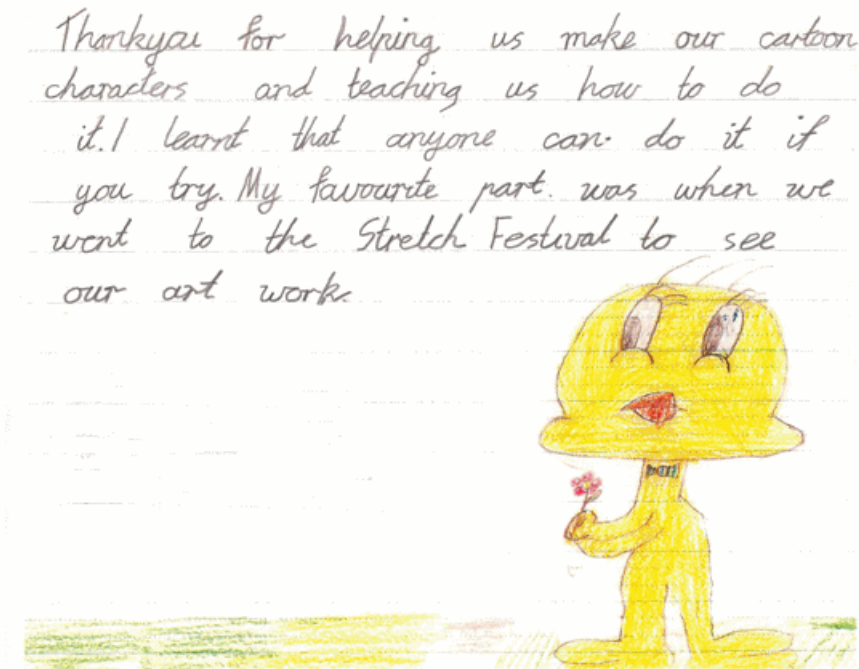 Thankyou for helping us make our cartoon
characters and teaching us how to do
it. I learnt that anyone can do it if
you try. My favourite part. was when we
went to the Stretch Festival to see
our art work.